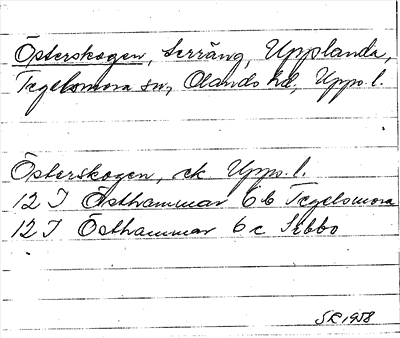 Österskogen, terräng, Upplanda,
Tegelsmora sn, Olands hd, Upps. l.
Österskogen, ek Upps. l.
12 I Östhammar 6 b Tegelsmora
12 I Östhammar 6 c Skbbo
SK 1958